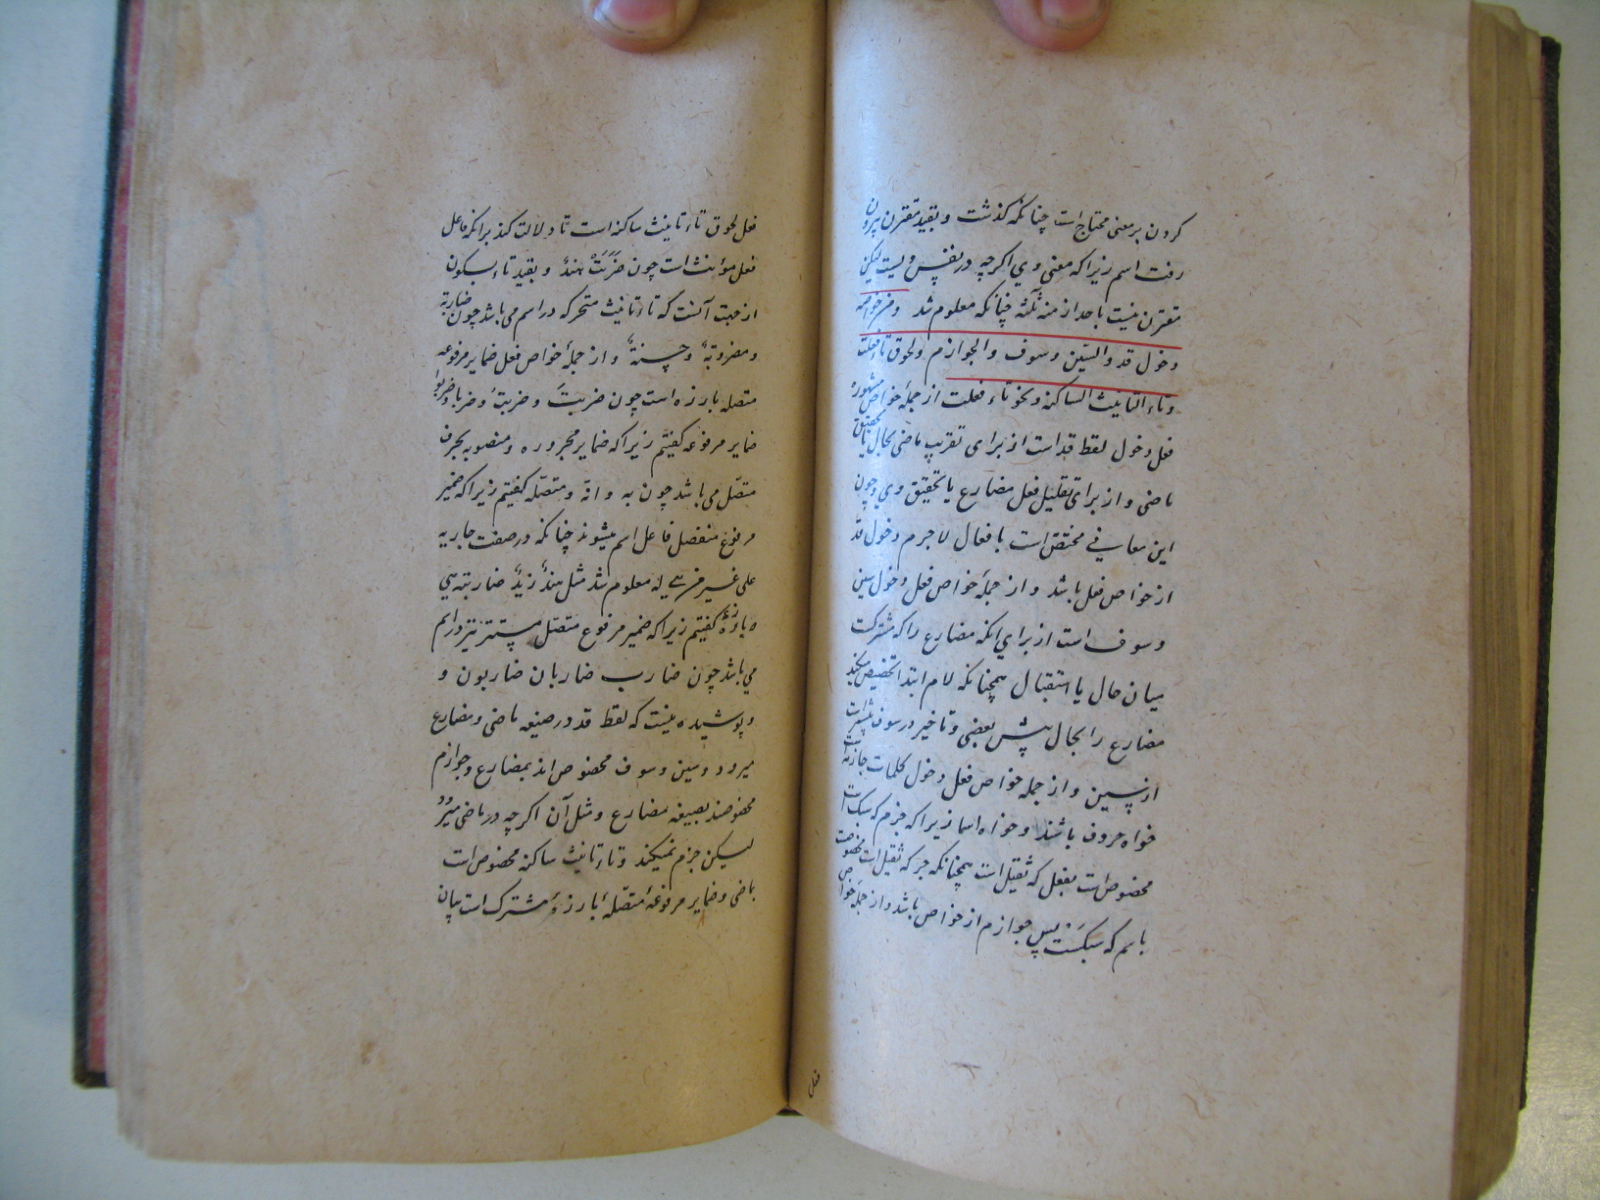 کردن بر معنی محتاج است چنانکه گذشت و بقید مقترن بیرون
رفت اسم زیرا که معنی وی اگرچه در نفس ویست لیکن
مقترن نیست باحد ازمنه ثلثه چنانکه معلوم شد ومن خواصه
دخول قد والسین وسوف والجوازم ولحوق تاء فعلت
وتاء التانیث الساکنه ونحو تاء فعلت از جملهٔ خواص مشهوره
فعل دخول لفظ قد است از برای تقریب ماضی بحال یا تحقیق
ماضی و از برای تقلیل فعل مضارع یا تحقیق وی و چون
این معانی مختص است بافعال لاجرم دخول قد
از خواص فعل باشد و از جملهٔ خواص فعل دخول سین
و سوف است از برای انکه مضارع را که مشترکست
میان حال یا استقبال همچنانکه لام ابتدا تخصیص میکند
مضارع را بحال پیش بعضی و تاخیر در سوف بیشتر است
از سین و از جمله خواص فعل دخول کلمات جازمه است
خواه حروف باشند و خواه اسما زیرا که جزم که سبک است
مخصوص است بفعل که ثقیل است همچنانکه جر که ثقیل است مخصوصست
باسم که سبکست پس جوازم از خواص باشد و از جمله خواص
فعل
فعل لحوق تاء تانیث ساکنه است تا دلالت کند برانکه فاعل
فعل مؤنث است چون ضَرَبَتْ هندٌ و بقید تاء بسکون
از جهت آنست که تاء تانیث متحرکه در اسم می باشد چون ضاربة
ومضروبةٌ وحسنةٌ و از جملهٔ خواص فعل ضمایر مرفوعه
متصله بارزه است چون ضربتَ و ضربتُ و ضربا و ضربوا
ضمایر مرفوعه گفتیم زیرا که ضمایر مجروره و منصوبه بحرف
متصل می باشد چون به و انه و متصله گفتیم زیرا که ضمیر
مرفوع منفصل فاعل اسم میشوند چنانکه در صفت جاریه
علی غیر من هی له معلوم شد مثل هندٌ زیدٌ ضاربته هی
و بارزه گفتیم زیرا که ضمیر مرفوع متصل مستتر نیز در اسم
می باشد چون ضارب ضاربان ضاربون و
و پوشیده نیست که لفظ قد در صیغه ماضی و مضارع
میرود و سین و سوف مخصوص اند بمضارع و جوازم
مخصوصند بصیغه مضارع و مثل آن اگرچه در ماضی میرود
لیکن جزم نمیکند و تاء تانیث ساکنه مخصوص است
بماضی و ضمایر مرفوعهٔ متصلهٔ بارزه مشترک است میان